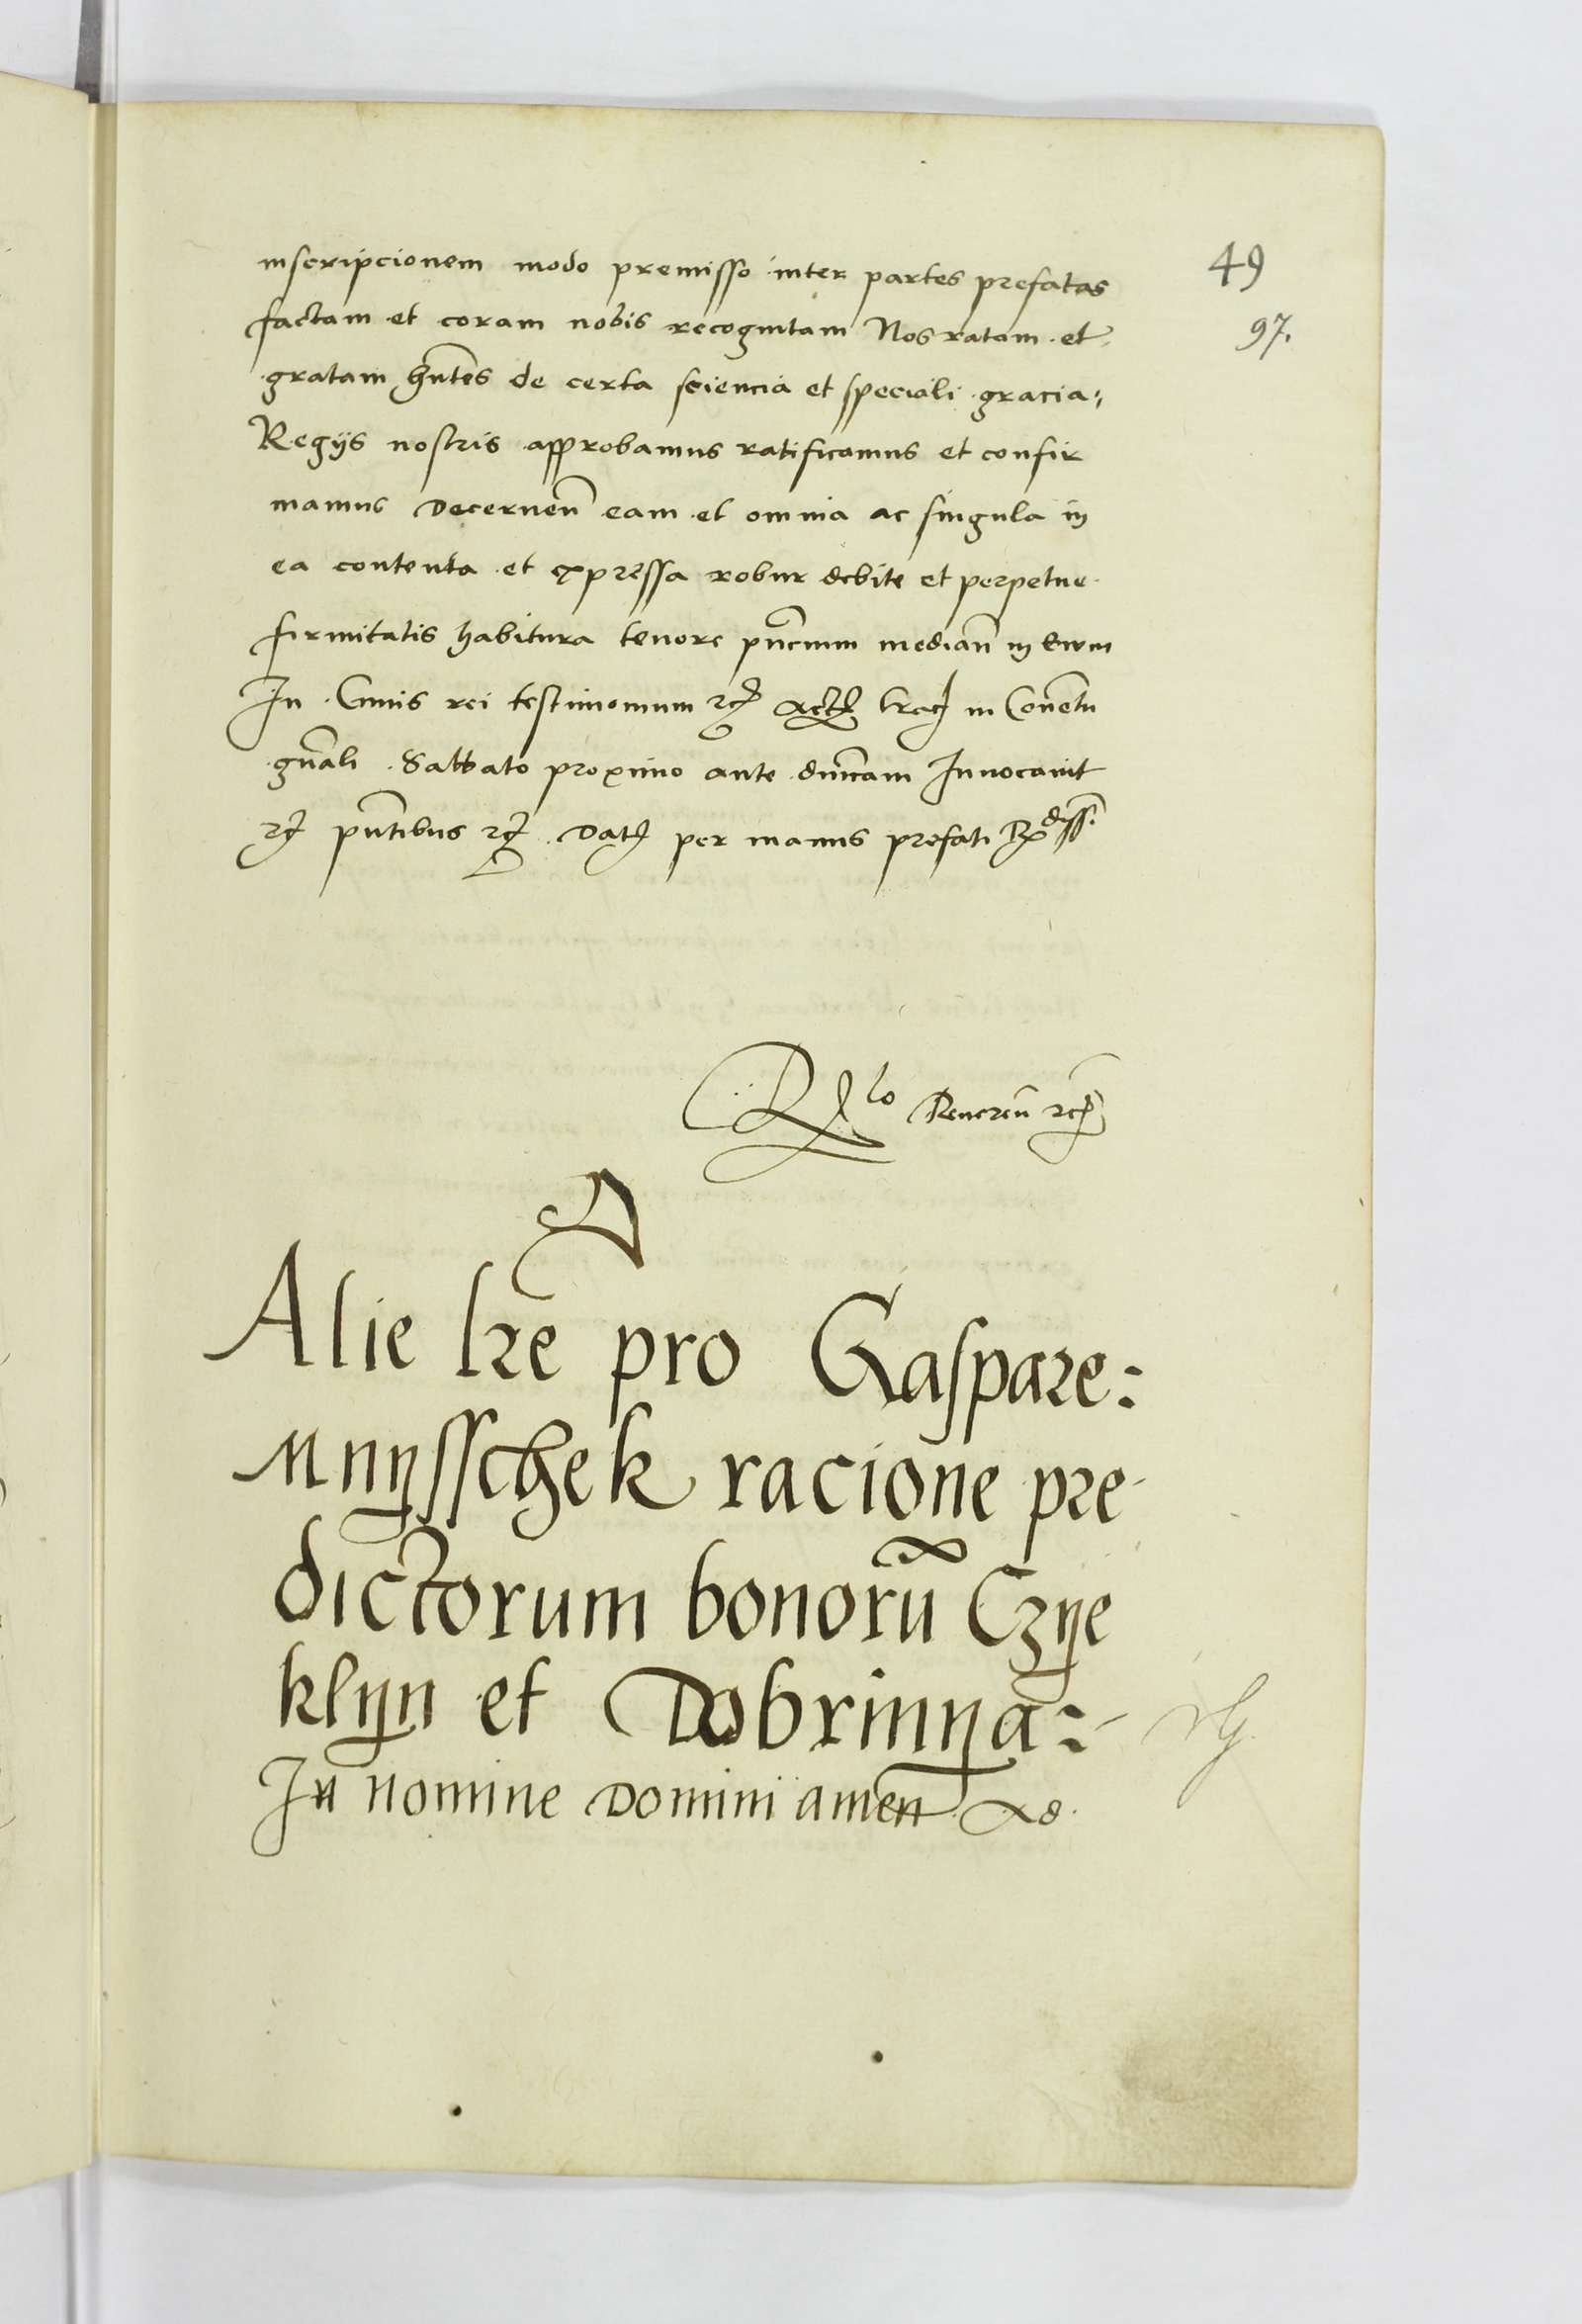 inscripcionem modo premisso inter partes prefatas
49
factam et coram nobis recognitam Nos ratam et
97.
gratam hn̄tes de certa sciencia et speciali gracia
Regijs nostris approbamus ratificamus et confir
mamus Decernen̄ eam et omnia ac singula in
ea contenta et expressa robur debite et perpetue
firmitatis habitura tenore pn̄cium median̄ in Ewm
In Cuius rei testimonium rc̄ Act Crac in Conentu
gn̄ali Sabbato proximo ante dnīcam Innocauit
rc̄ pn̄tibus rc̄ Dat per manus prefati
Rlo Reneren̄ rc̄
Alie lrē pro Gaspare:
Mnysschek racione pre
dictorum bonorū Czye
klyn et Dobrinya:
In nomine Domini amen